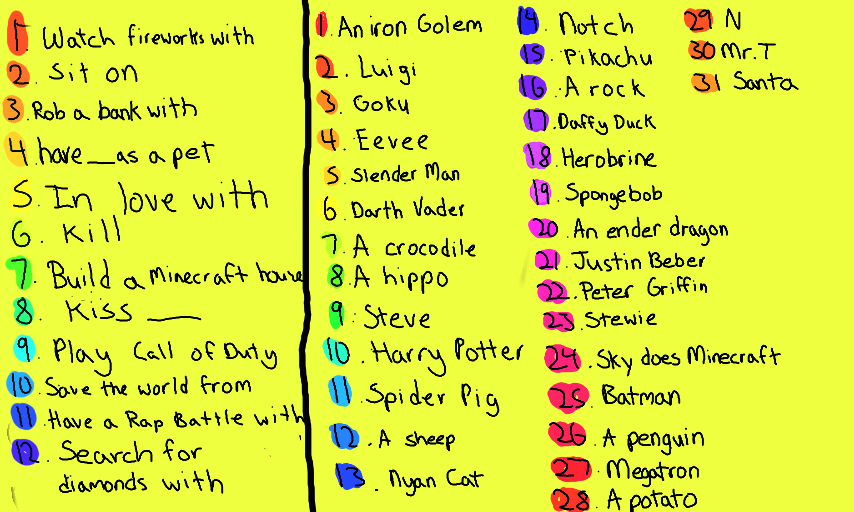 1 Watch fireworks with
2. Sit on
3. Rob a bank with
4. have __ as a pet
5. In love with
6. Kill
7. Build a Minecraft house
8. Kiss ___
9. Play Call of Duty
10. Save the world from
11. Have a Rap Battle with
12. Search for
diamonds with
1. An iron Golem
2. Luigi
3. Goku
4. Eevee
5. Slender Man
6. Darth Vader
7. A crocodile
8. A hippo
9. Steve
10. Harry Potter
11. Spider Pig
12. A sheep
13. Nyan Cat
14. Notch
15. Pikachu
16. A rock
17. Daffy Duck
18. Herobrine
19. Spongebob
20. An ender dragon
21. Justin Beber
22. Peter Griffin
23. Stewie
24. Sky does Minecraft
25. Batman
26. A penguin
27. Megatron
28. A potato
29 N
30 Mr.T
31 Santa